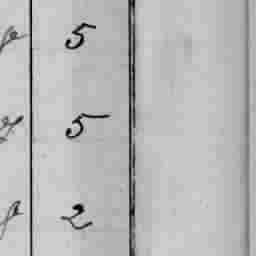 5
5
2